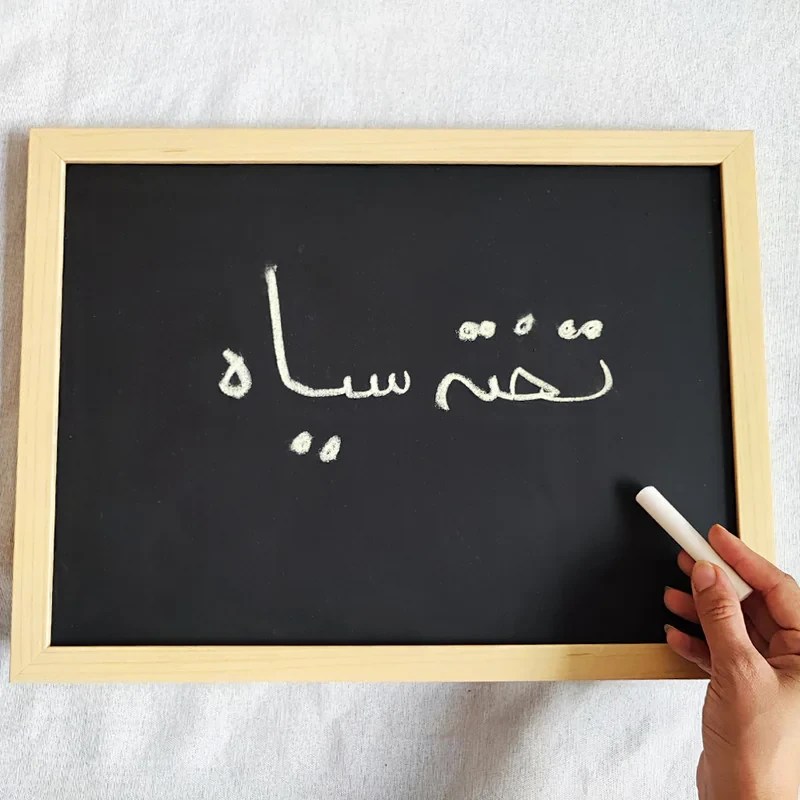 تخته سیاه